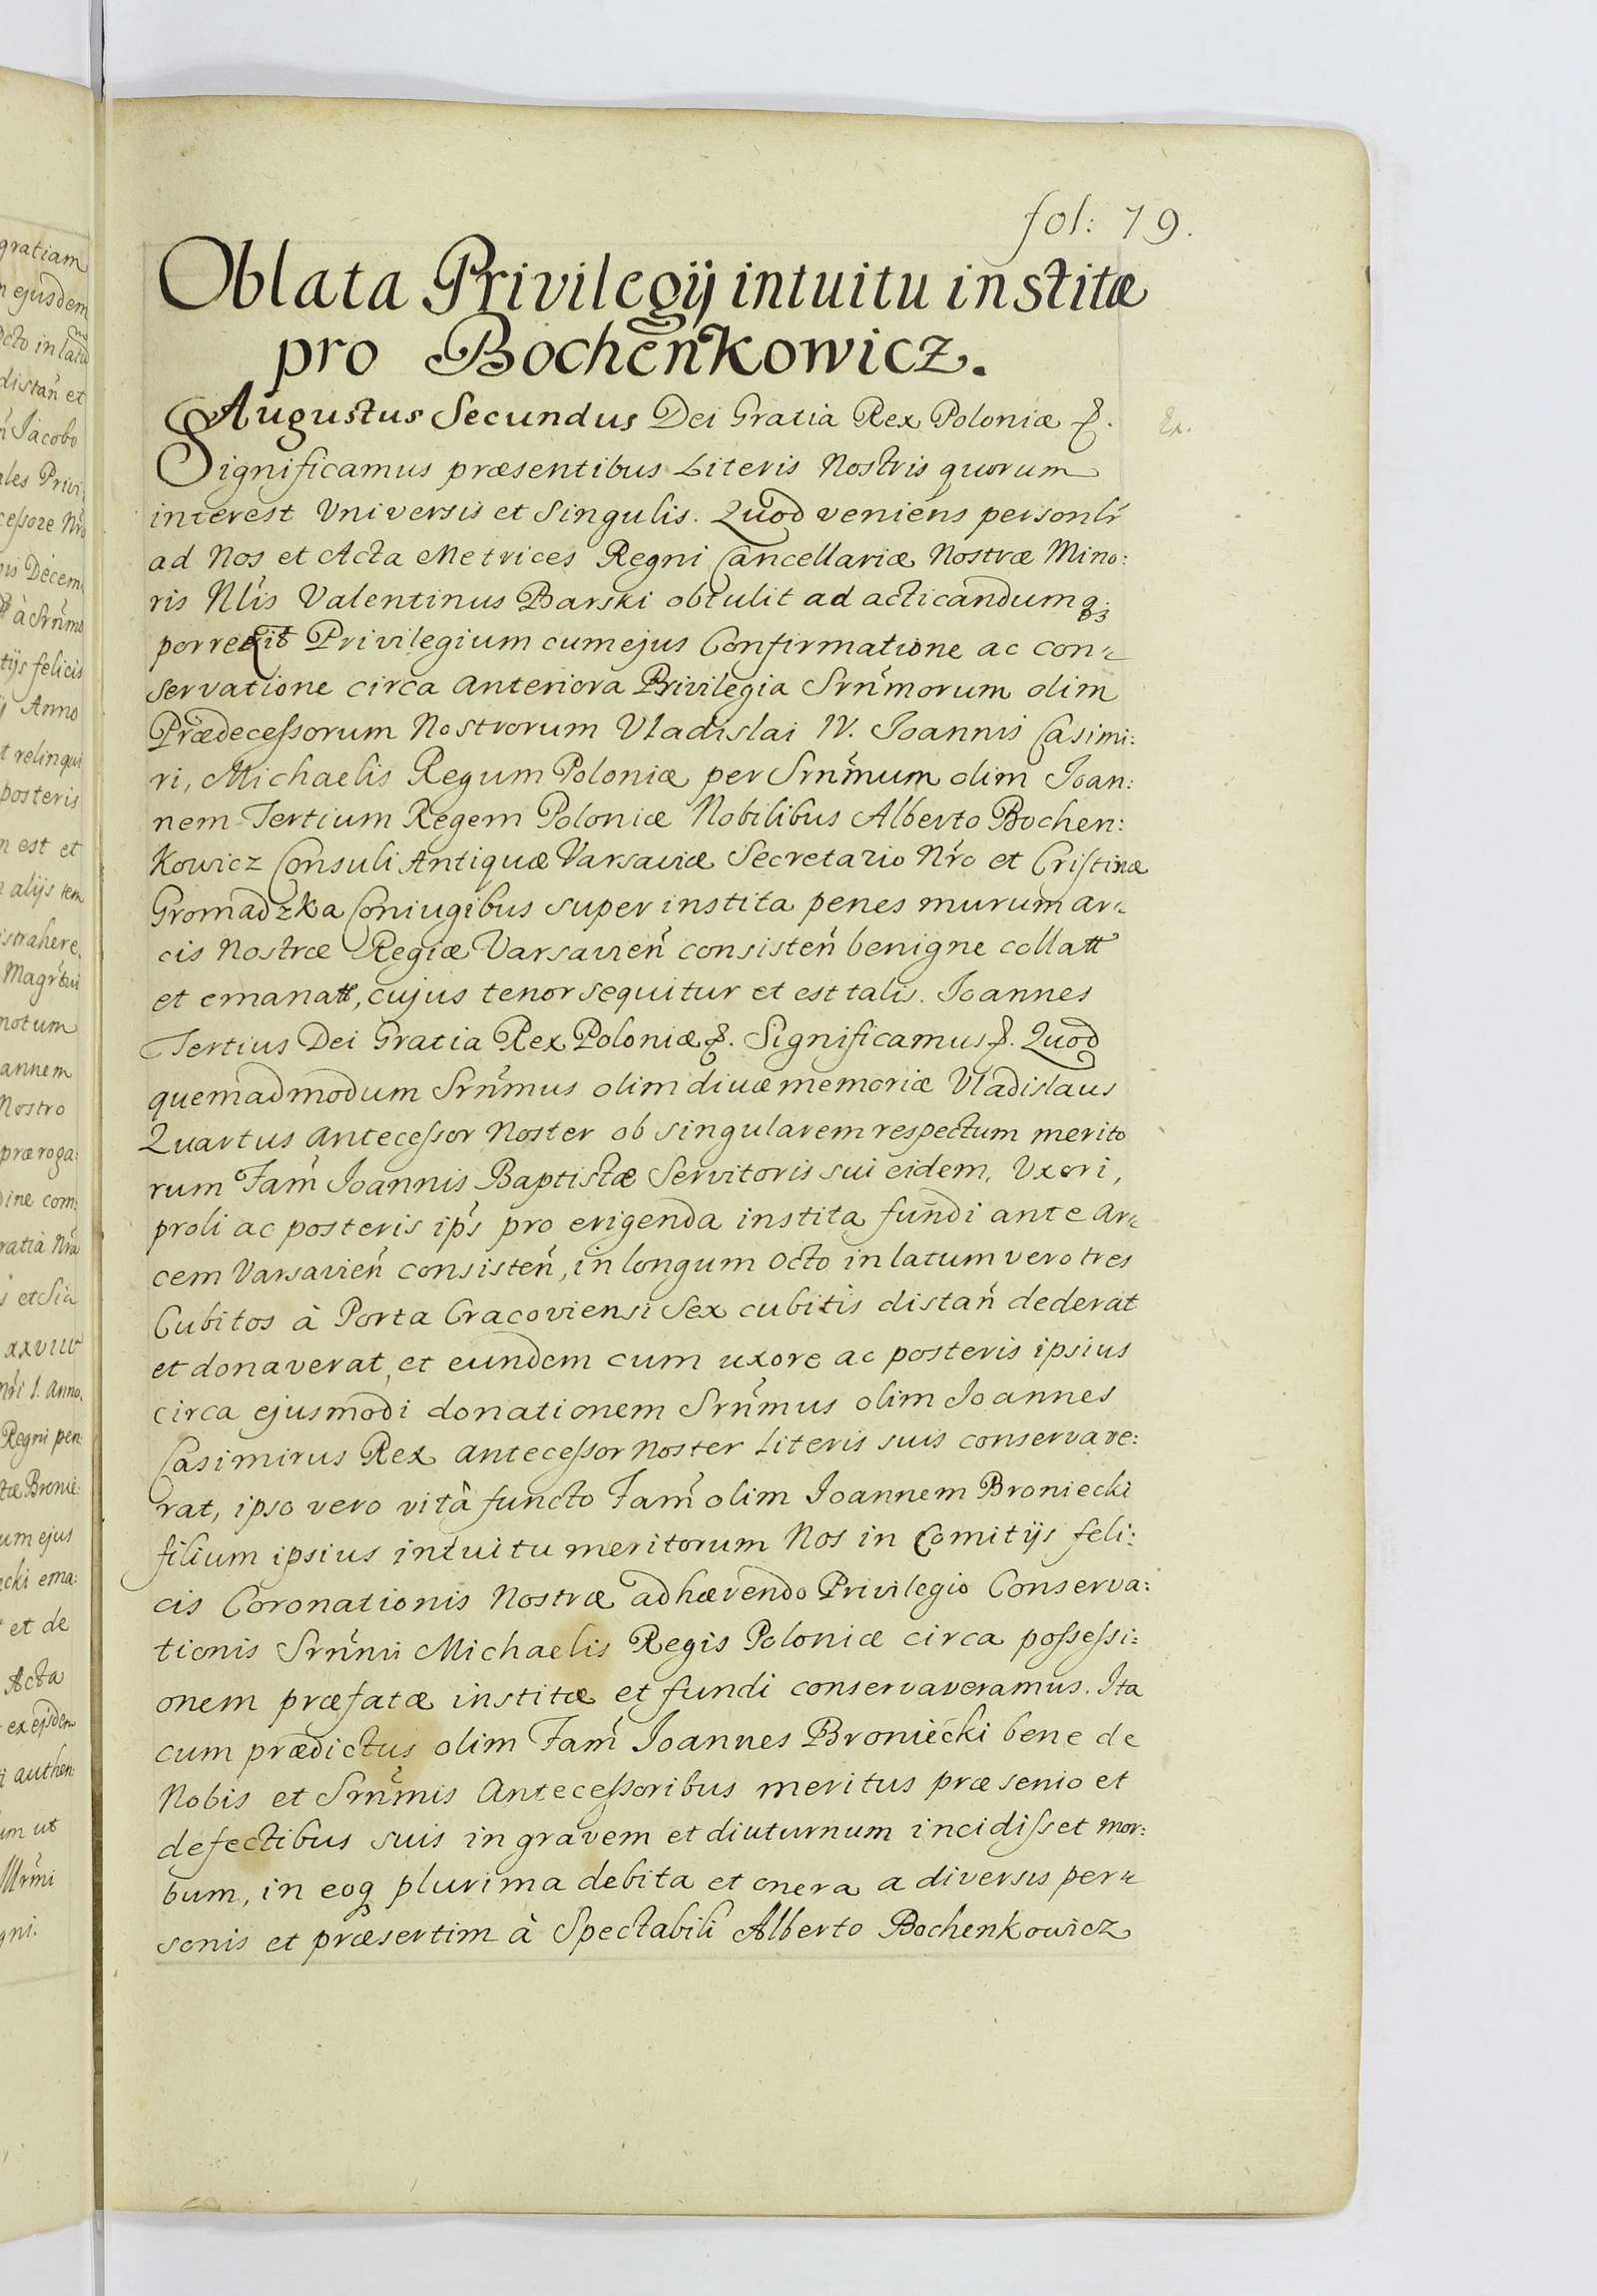 fol: 79.
Oblata Privilegij intuitu institæ
pro Bochenkowicz.
Augustus Secundus Dei Gratia Rex Poloniæ &.
Significamus præsentibus Literis Nostris quorum
interest Universis et Singulis. Quod veniens personlr̃
ad Nos et Acta Metrices Regni Cancellariæ Nostræ Mino:
ris Nlis Valentinus Barski obtulit ad acticandum q3
porrexit Privilegium cum ejus Confirmatione ac con=
servatione circa anteriora Privilegia Srñmorum olim
Prædecessorum Nostrorum Vladislai IV. Joannis Casimi:
ri, Michaelis Regum Poloniæ per Srñmum olim Joan:
nem Tertium Regem Poloniæ Nobilibus Alberto Bochen:
Kowicz Consuli Antiquæ Varsaviæ Secretario Nr̃o et Cristinæ
Gromadzka Coniugibus super instita penes murum ar=
cis Nostræ Regiæ Varsavień consisteń benigne collatt
et emanatt, cujus tenor sequitur et est talis. Joannes
Tertius Dei Gratia Rex Poloniæ &. Significamus &. Quod
quemadmodum Srñmus olim divæ memoriæ Vladislaus
Quartus antecessor Noster ob singularem respectum merito
rum Fam̃ Joannis Baptistæ Servitoris sui eidem, Uxori,
proli ac posteris ip̃s pro erigenda instita fundi ante ar=
cem Varsavień consisteń, in longum octo in latum vero tres
Cubitos à Porta Cracoviensi Sex cubitis distań dederat
et donaverat, et eundem cum uxore ac posteris ipsius
circa ejusmodi donationem Srñmus olim Joannes
Casimirus Rex antecessor Noster Literis suis conservave:
rat, ipso vero vitâ functo Fam̃ olim Joannem Broniecki
filium ipsius intuitu meritorum Nos in Comitijs feli:
cis Coronationis Nostræ adhærendo Privilegio Conserva:
tionis Srñmi Michaelis Regis Poloniæ circa possessi:
onem præfatæ institæ et fundi conservaveramus. Ita
cum prædictus olim Fam̃ Joannes Broniecki bene de
Nobis et Srñmis Antecessoribus meritus præ senio et
defectibus suis in gravem et diuturnum incidisset mor:
bum, in eoq plurima debita et onera a diversis per=
sonis et præsertim à Spectabili Alberto Bochenkowicz